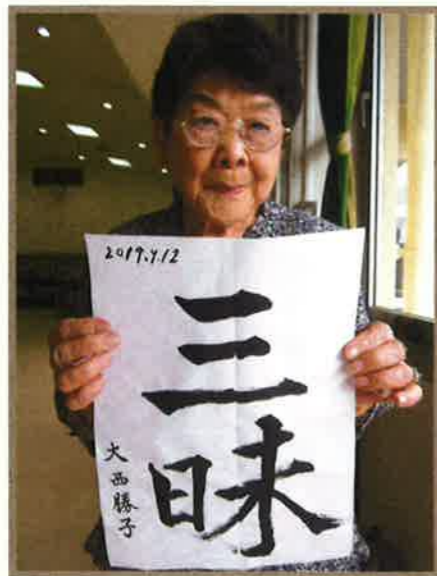 2019.4.12
三昧
大西勝子